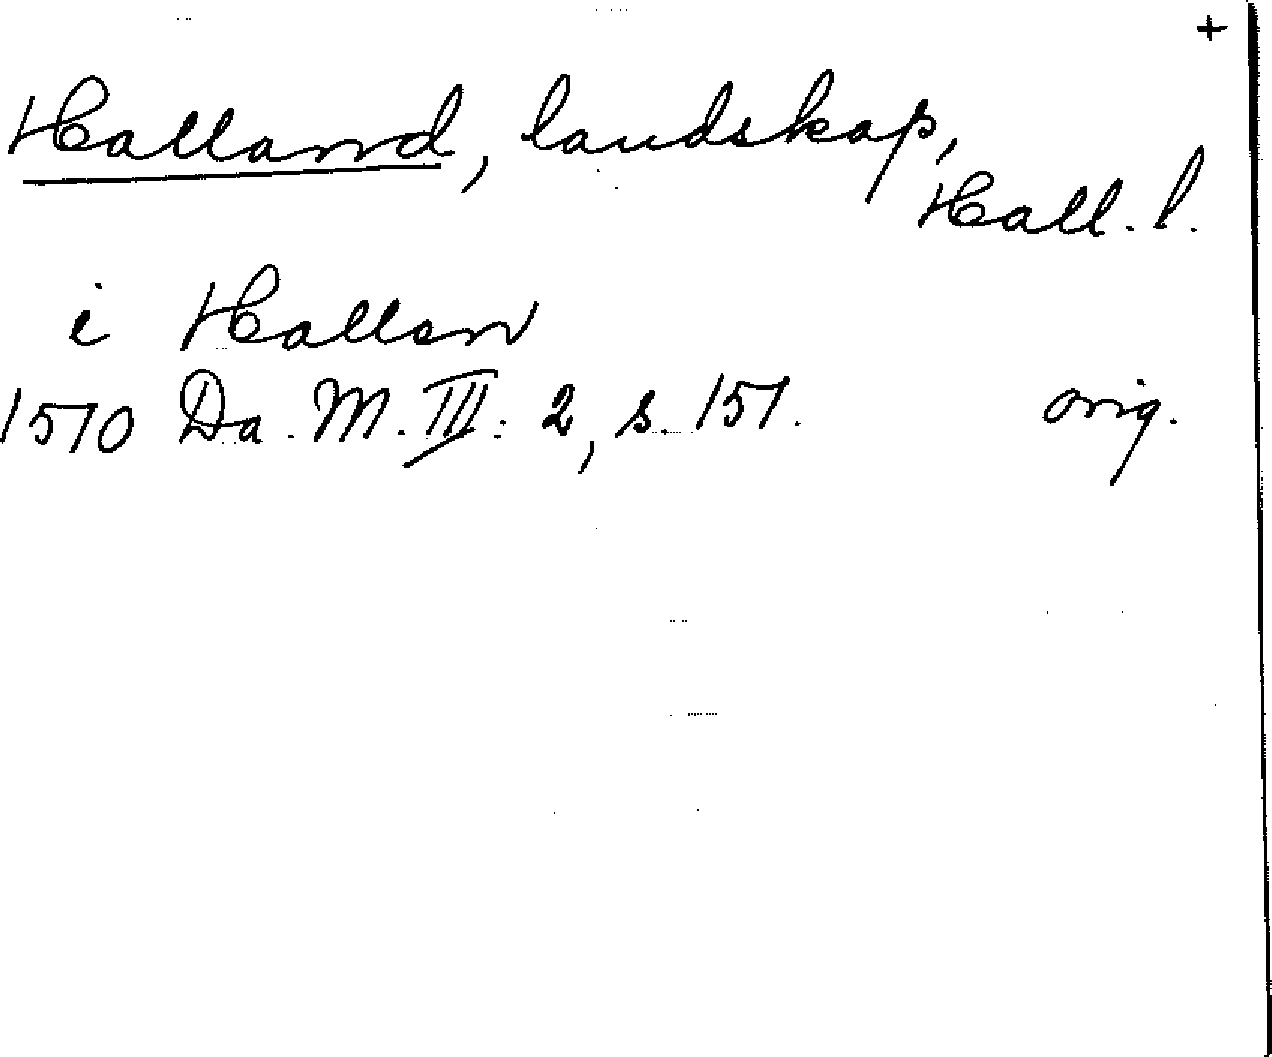 +
Halland, landskap,
Hall. l.
i Hallan
1570 Da. M. III: 2, s. 157. orig.